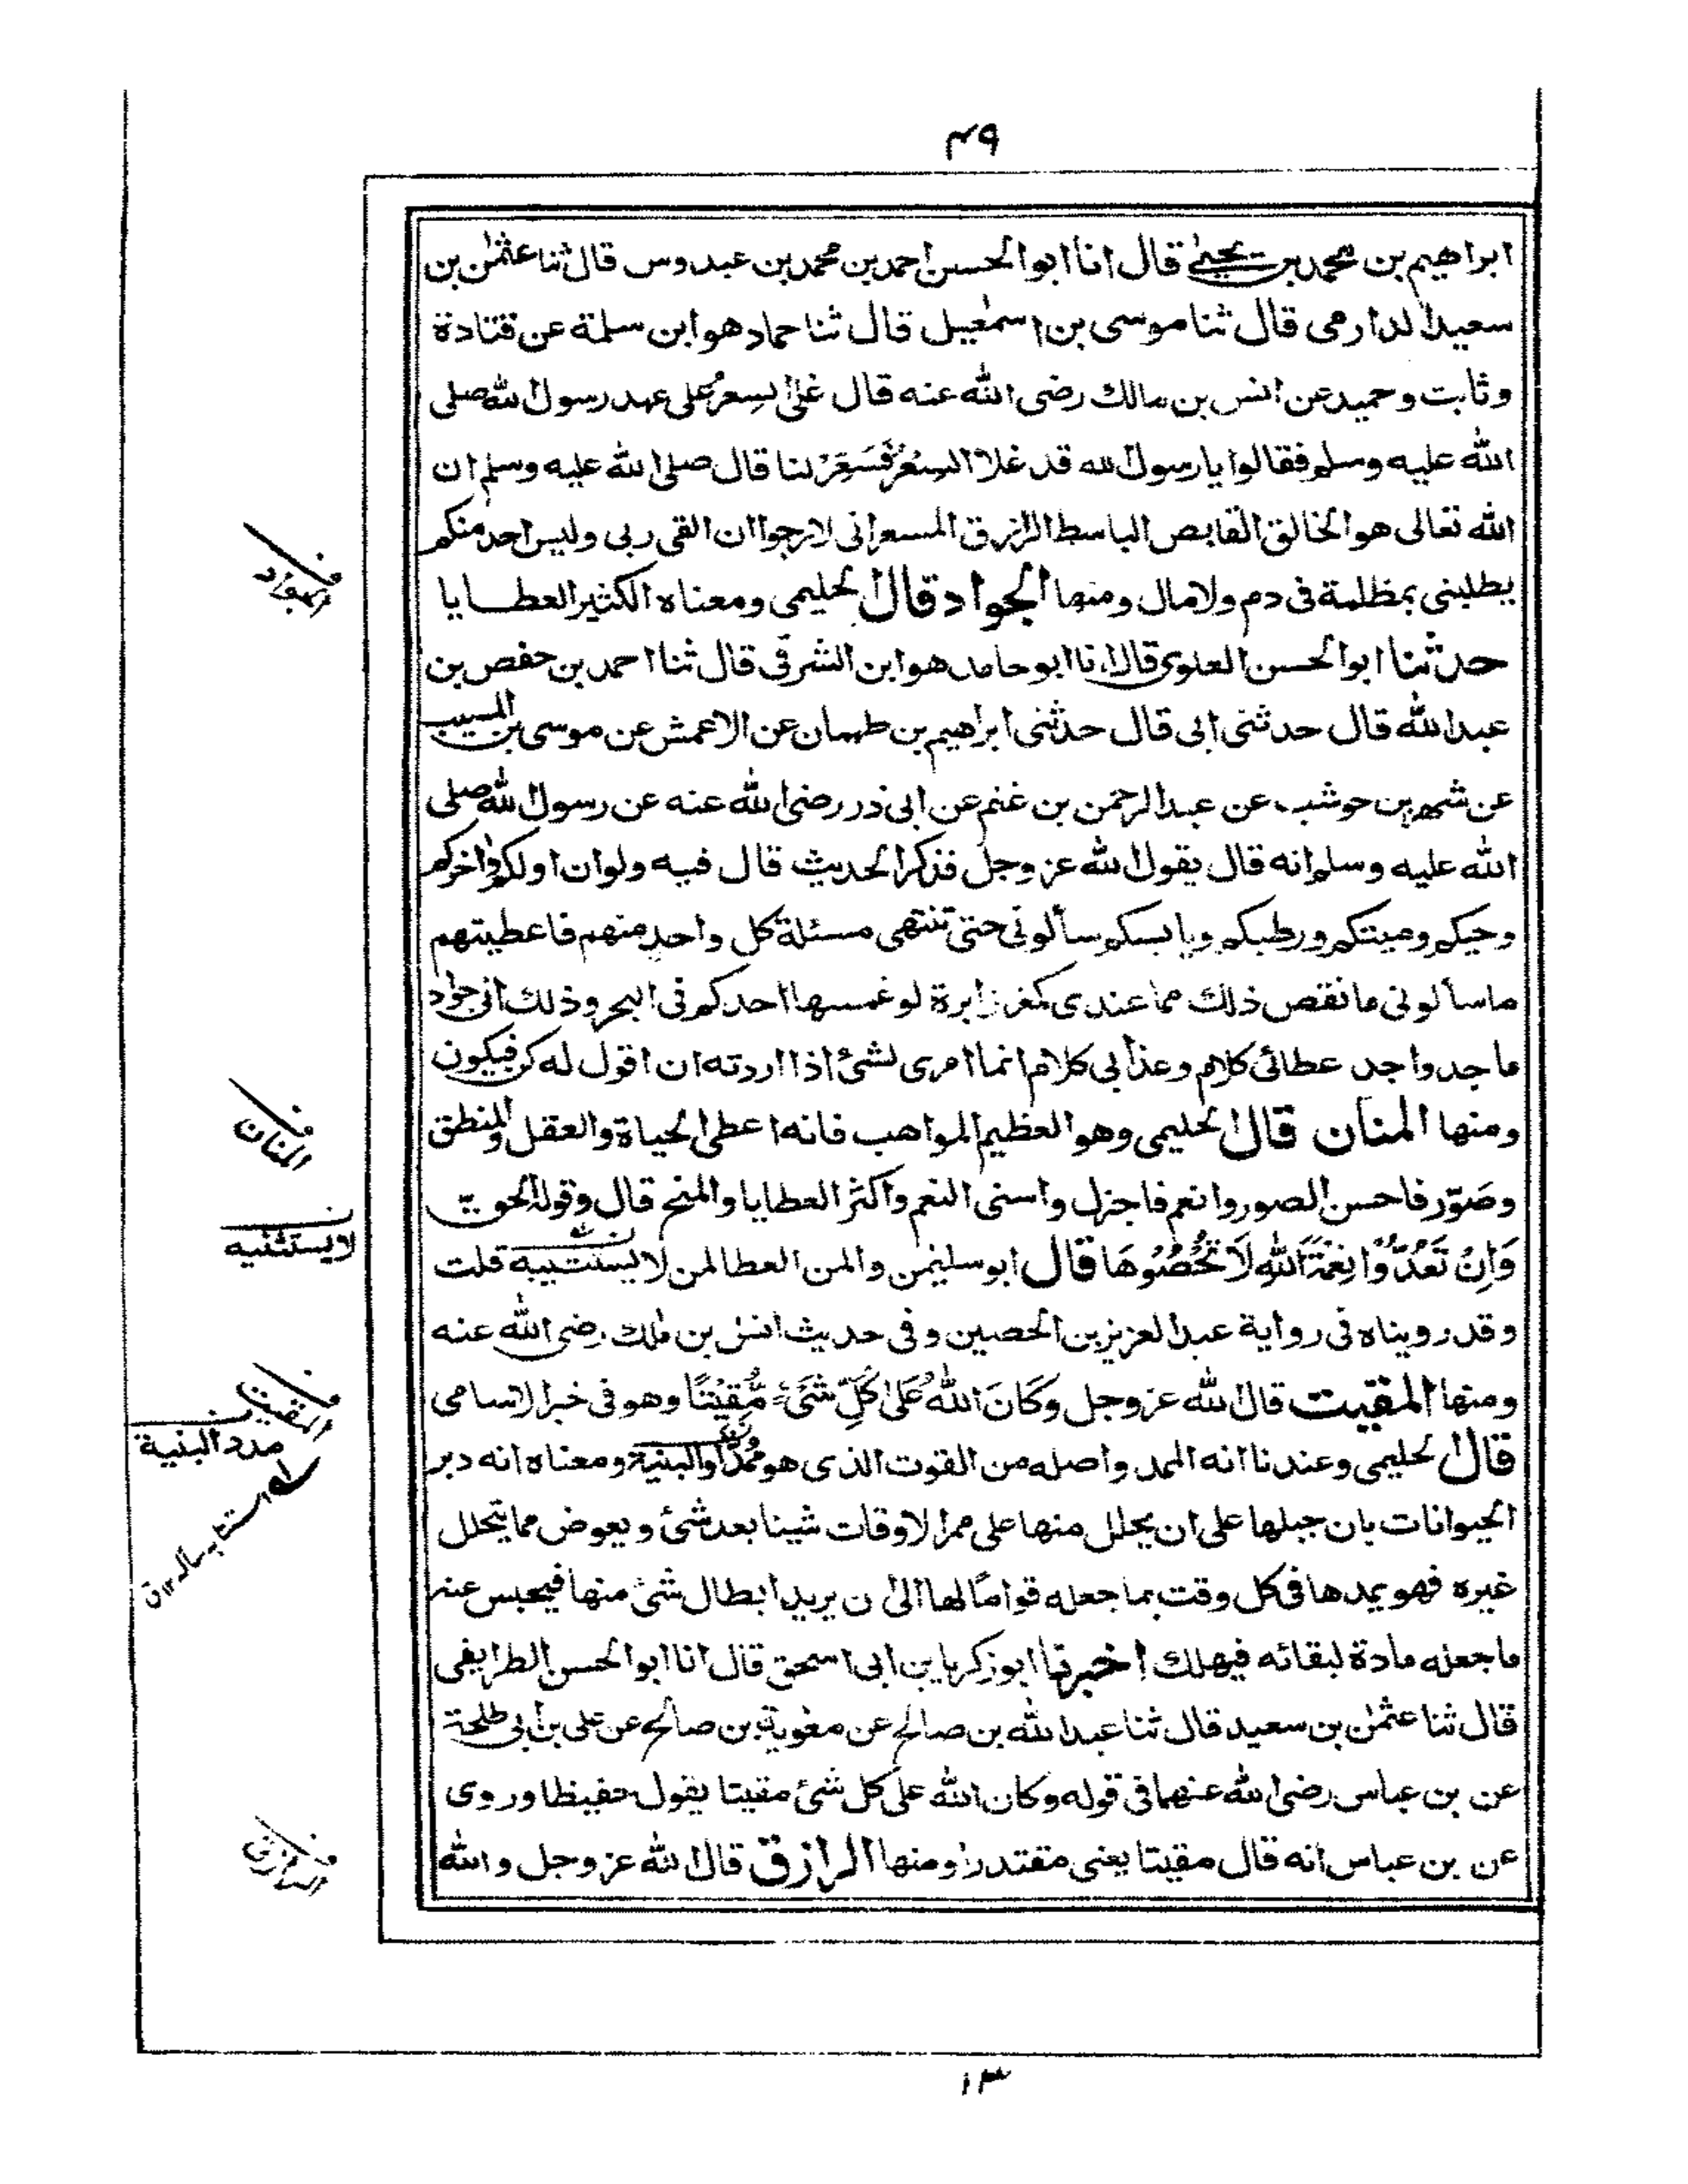 ٤٩
ابراهيم بن محمد بن يحيىٰ قال انا ابو الحسن احمد بن محمد بن عبدوس قال ثنا عثمٰن بن
سعيد الدارمى قال ثنا موسى بن اسمٰعيل قال ثنا حماد هو ابن سلمة عن قتادة
وثابت وحميد عن انس بن مالك رضى الله عنه قال غلى السعر على عهد رسول الله صلى
الله عليه وسلم فقالوا يا رسول الله قد غلا السِعْرُ فَسَعِّرْ لنا قال صلى الله عليه وسلم ان
الله تعالى هو الخالق القابض الباسط الرازق المسعر انى لارجوا ان القى ربى وليس احد منكم
يطلبنى بمظلمة فى دم ولا مال ومنها الجواد قال الحليمى ومعناه الكثير العطايا
حدثنا ابو الحسن العلوى قال انا ابو حامد هو ابن الشرقى قال ثنا احمد بن حفص بن
عبد الله قال حدثنى ابى قال حدثنى ابراهيم بن طهمان عن الاعمش عن موسى بن المسيب
عن شهر بن حوشب عن عبد الرحمن بن غنم عن ابى ذر رضى الله عنه عن رسول الله صلى
الله عليه وسلم انه قال يقول الله عز وجل فذكر الحديث قال فيه ولو ان اولكم واخركم
وحيكم وميتكم ورطبكم ويابسكم سألونى حتى تنتهى مسئلة كل واحد منهم فاعطيتهم
ما سألونى ما نقص ذلك مما عندى كمغرز ابرة لو غمسها احدكم فى البحر وذلك انى جواد
ماجد واجد عطائى كلام وعذابى كلام انما امرى لشئ اذا اردته ان اقول له كن فيكون
ومنها المنان قال الحليمى وهو العظيم المواهب فانه اعطى الحياة والعقل والمنطق
وصَوّر فاحسن الصور وانعم فاجزل واسنى النعم واكثر العطايا والمنح قال وقوله الحق
وَاِنْ تَعُدُّوْا نِعْمَةَ اللهِ لَا تُحْصُوْهَا قال ابو سليمٰن والمن العطا لمن لا يستثيبه قلت
وقد رويناه فى رواية عبد العزيز بن الحصين وفى حديث انس بن مٰلك رضى الله عنه
ومنها المقيت قال الله عز وجل وَكَانَ اللهُ عَلىٰ كُلِّ شَىْءٍ مُّقِيْتًا وهو فى خبر الاسامى
قال الحليمى وعندنا انه الممد واصله من القوت الذى هو مُمِدٌّ او البنية ومعناه انه دبر
الحيوانات بان جبلها على ان يحلل منها على ممر الاوقات شيئا بعد شئ ويعوض مما يتحلل
غيره فهو يمدها فى كل وقت بما جعله قوامًا لها الى ان يريد ابطال شئ منها فيحبس عنه
ما جعله مادة لبقائه فيهلك اخبرنا ابو زكريا بن ابى اسحق قال انا ابو الحسن الطرايفى
قال ثنا عثمٰن بن سعيد قال ثنا عبد الله بن صالح عن معٰوية بن صالح عن على بن ابى طلحة
عن بن عباس رضى الله عنهما فى قوله وكان الله على كل شئ مقيتا يقول حفيظا وروى
عن بن عباس انه قال مقيتا يعنى مقتدرا ومنها الرازق قال الله عز وجل والله
الجواد
المنان
لا يستثنيه
المقيت
مدد البنية
الرازق
١٣